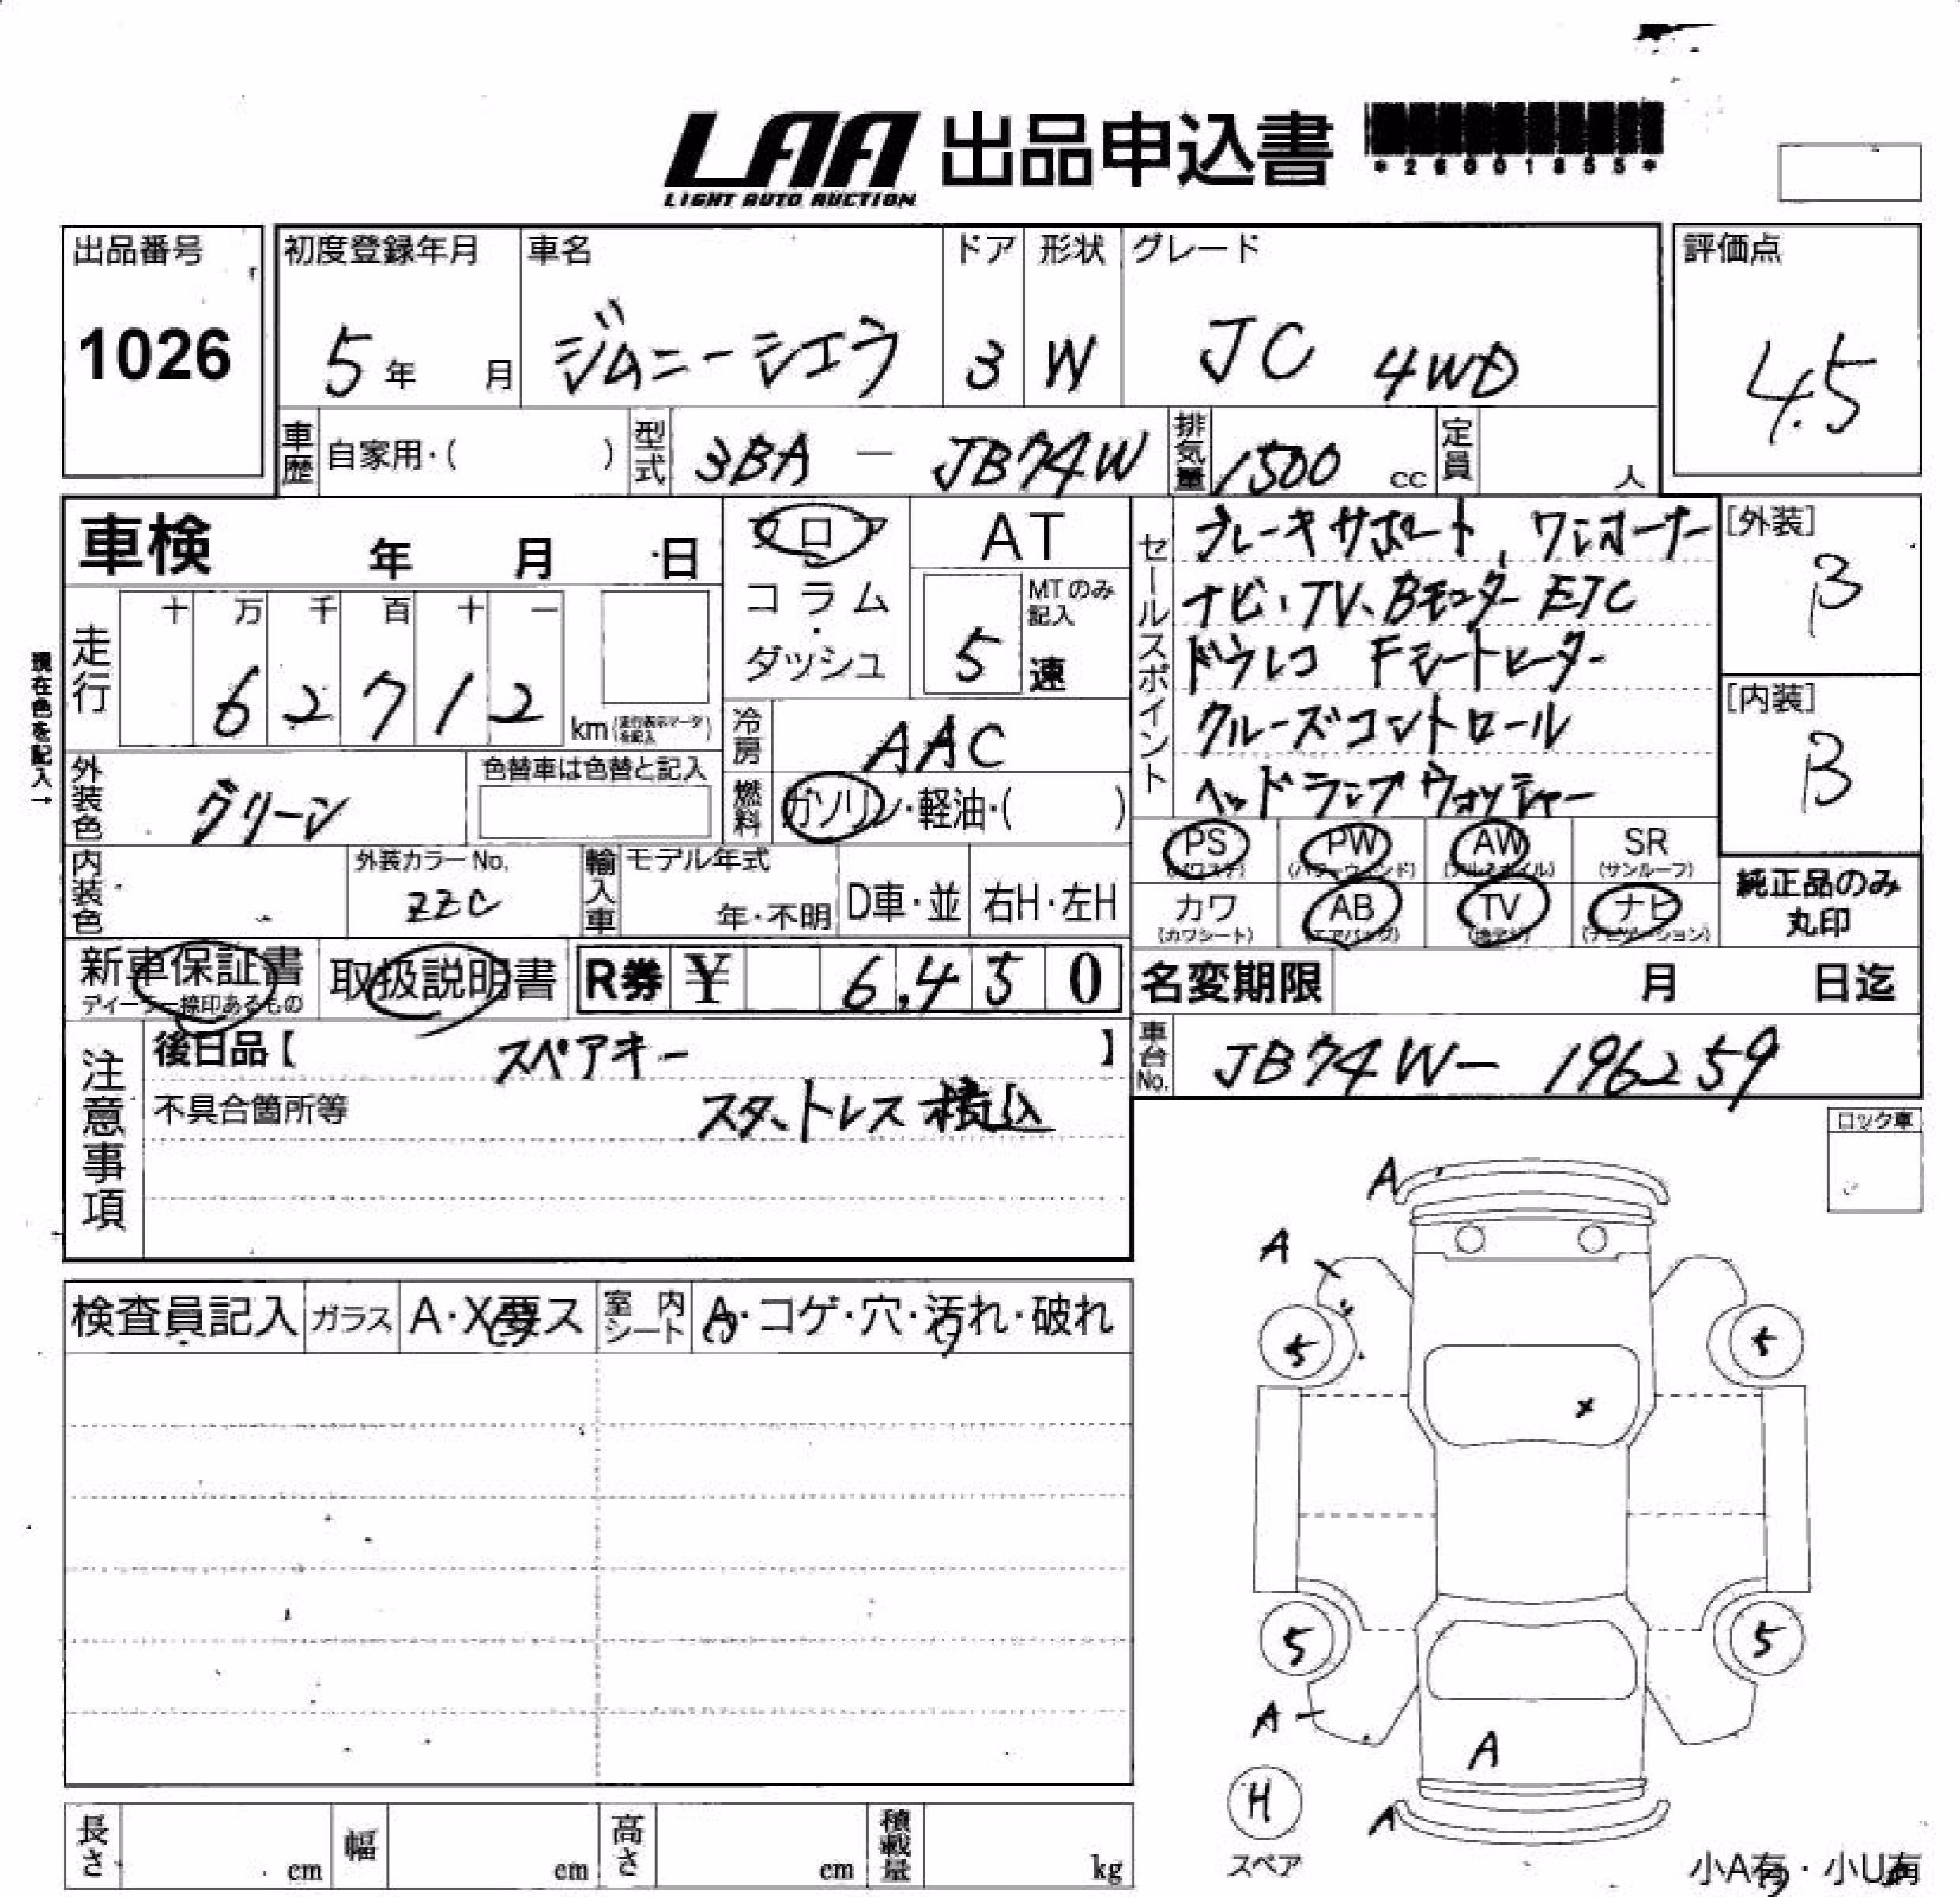 LAA 出品申込書
LIGHT AUTO AUCTION
*26001855*
出品番号
1026
初度登録年月
5年 月
車名
ジムニーシエラ
ドア
3
形状
W
グレード
JC 4WD
評価点
4.5
車歴 自家用・( )
型式 3BA - JB74W
排気量 1500 cc
定員 人
車検 年 月 日
フロア
コラム
・
ダッシュ
AT
MTのみ
記入
5 速
セールスポイント
ブレーキサポート、ワンオーナー
ナビ、TV、Bモニター ETC
ドラレコ Fシートヒーター
クルーズコントロール
ヘッドランプウォッシャー
[外装]
B
[内装]
B
現在色を記入→
走行
十 万 千 百 十 一
6 2 7 1 2
km (走行表示マークを記入)
冷房 AAC
外装色 グリーン
色替車は色替と記入
燃料 ガソリン・軽油・( )
PS (パワステ)
PW (パワーウィンド)
AW (アルミホイル)
SR (サンルーフ)
カワ (カワシート)
AB (エアバッグ)
TV (地デジ)
ナビ (ナビゲーション)
純正品のみ
丸印
内装色
外装カラーNo.
ZZC
輸入車
モデル年式
年・不明
D車・並
右H・左H
新車保証書
ディーラー捺印あるもの
取扱説明書
R券 ¥ 6,450
名変期限 月 日迄
注意事項
後日品【 スペアキー 】
不具合箇所等 スタットレス積込
車台No. JB74W- 196259
ロック車
検査員記入
ガラス A・X要ス
室内シート A・コゲ・穴・汚れ・破れ
A
A
5
5
x
5
5
A
A
H
スペア
A
長さ cm
幅 cm
高さ cm
積載量 kg
小A有・小U有